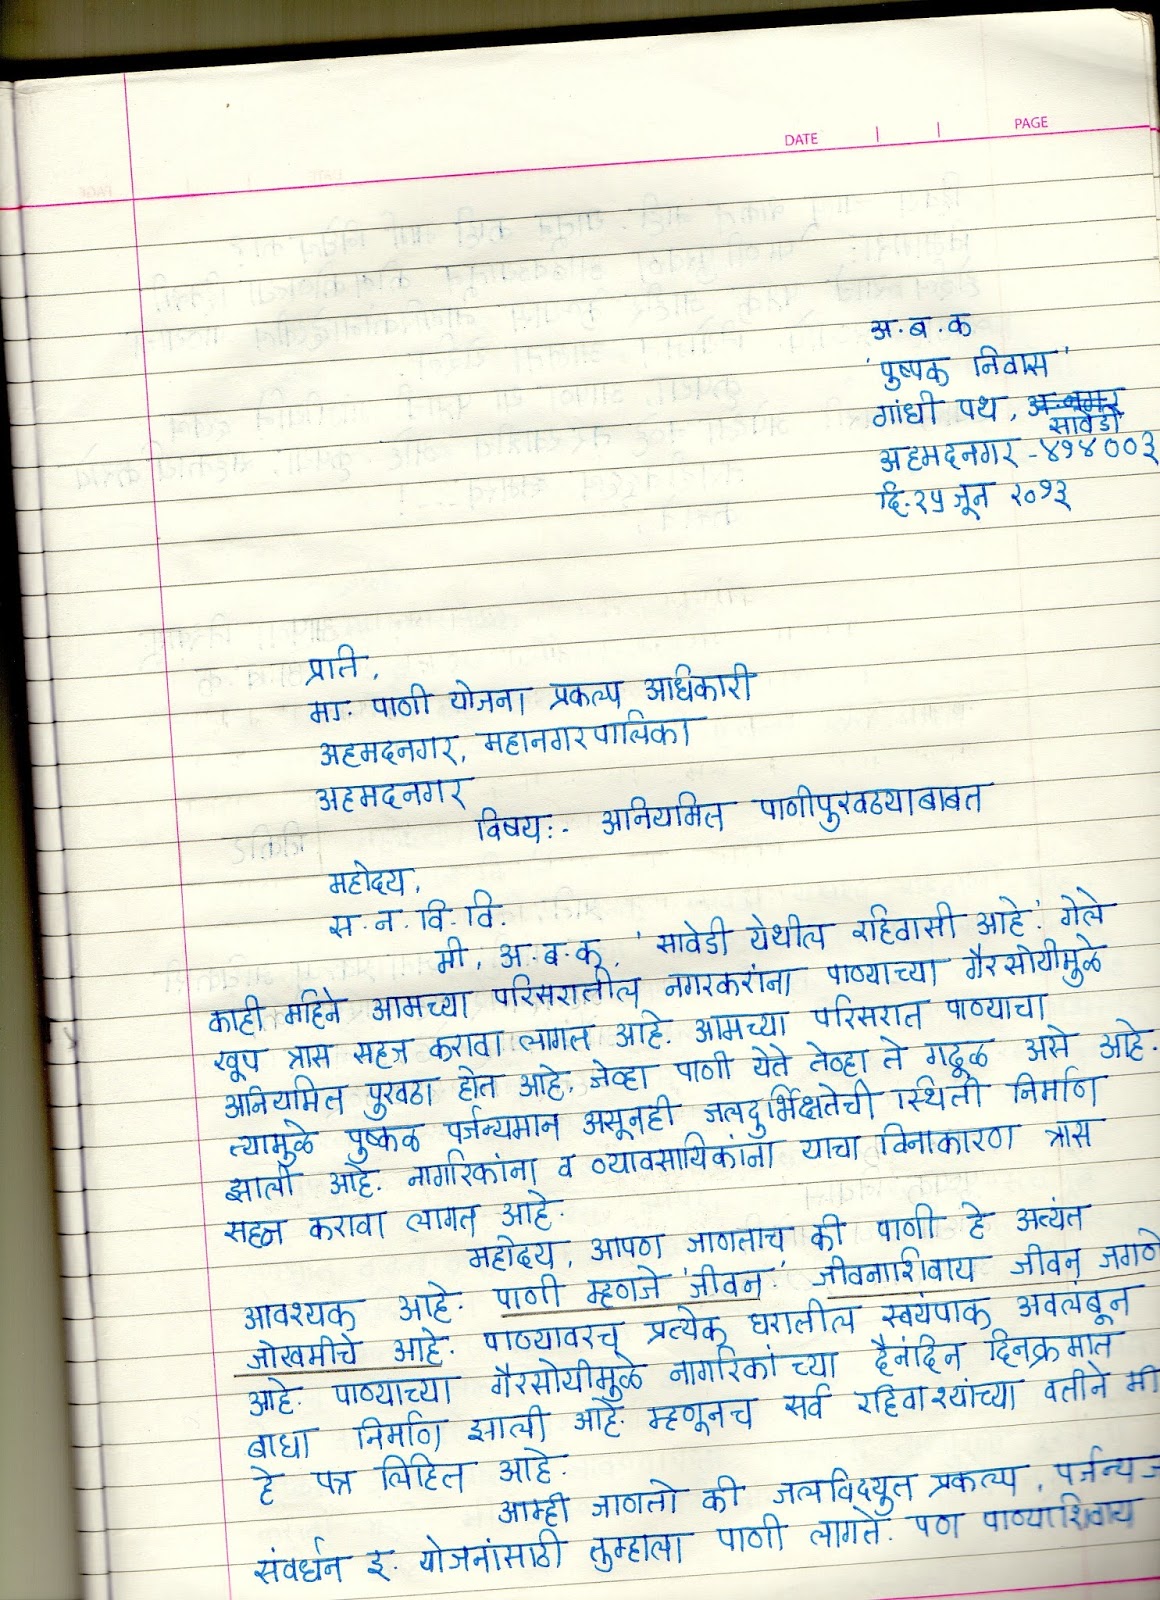 DATE PAGE
अ.ब.क
'पुष्पक निवास'
गांधी पथ,
सावेडी
अहमदनगर-४१४००३
दि.२५ जून २०१३
प्रति,
मा. पाणी योजना प्रकल्प अधिकारी
अहमदनगर, महानगरपालिका
अहमदनगर
विषय:- अनियमित पाणीपुरवठ्याबाबत
महोदय,
स.न.वि.वि.
मी, अ.ब.क, 'सावेडी येथील रहिवासी आहे.' गेले
काही महिने आमच्या परिसरातील नगरकरांना पाण्याच्या गैरसोयीमुळे
खूप त्रास सहन करावा लागत आहे. आमच्या परिसरात पाण्याचा
अनियमित पुरवठा होत आहे. जेव्हा पाणी येते तेव्हा ते गढूळ असे आहे.
त्यामुळे पुष्कळ पर्जन्यमान असूनही जलदुर्भिक्षतेची स्थिती निर्माण
झाली आहे. नागरिकांना व व्यावसायिकांना याचा विनाकारण त्रास
सहन करावा लागत आहे.
महोदय, आपण जाणताच की पाणी हे अत्यंत
आवश्यक आहे. पाणी म्हणजे 'जीवन.' जीवनाशिवाय जीवन जगणे
जोखमीचे आहे. पाण्यावरच प्रत्येक घरातील स्वयंपाक अवलंबून
आहे. पाण्याच्या गैरसोयीमुळे नागरिकांच्या दैनंदिन दिनक्रमात
बाधा निर्माण झाली आहे. म्हणूनच सर्व रहिवाश्यांच्या वतीने मी
हे पत्र लिहित आहे.
आम्ही जाणतो की जलविद्युत प्रकल्प, पर्जन्य ज
संवर्धन इ. योजनांसाठी तुम्हाला पाणी लागते. पण पाण्याशिवाय